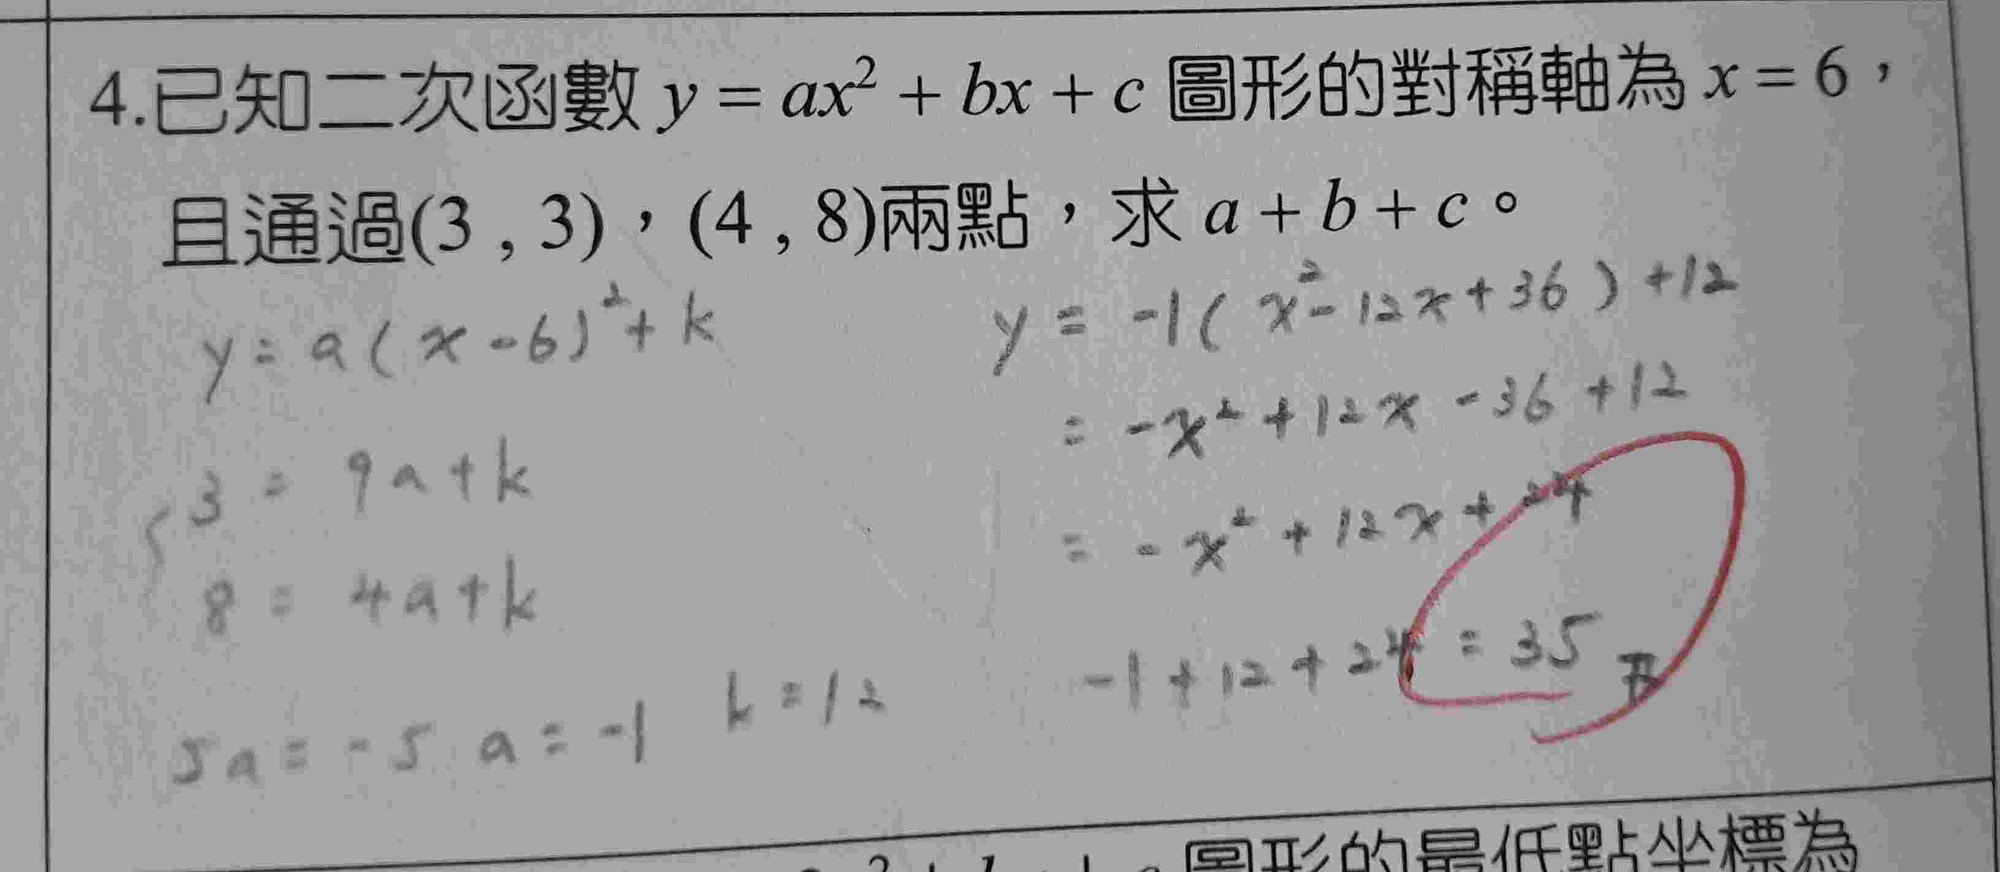 4.已知二次函數 y = ax² + bx + c 圖形的對稱軸為 x = 6，
且通過(3 , 3)，(4 , 8)兩點，求 a + b + c。
y = a(x-6)² + k
3 = 9a+k
8 = 4a+k
5a = -5 a = -1 k = 12
y = -1(x²-12x+36)+12
= -x²+12x-36+12
= -x²+12x+24
-1+12+24 = 35
圖形的最低點坐標為